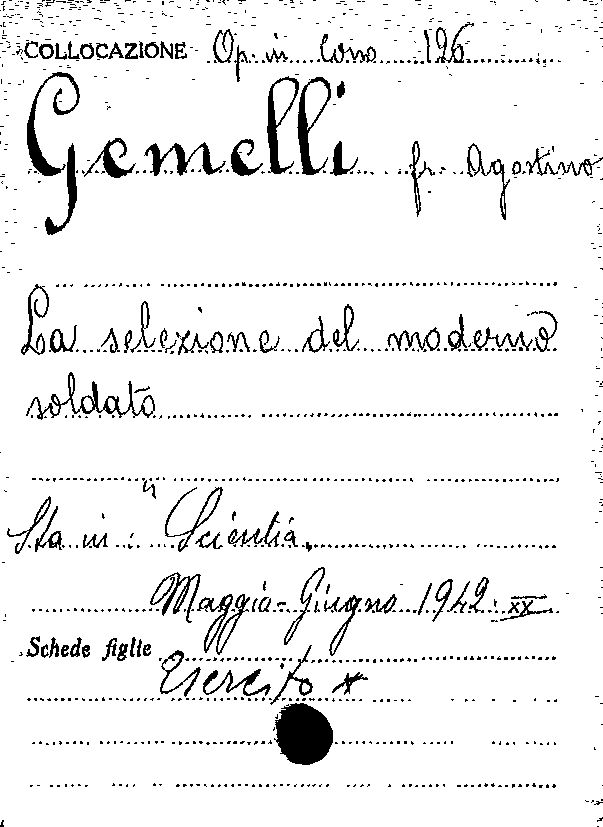 COLLOCAZIONE Op. in Cons 196
Gemelli fr. Agostino
La selezione del moderno
soldato
Sta in: "Scientia.
Maggio-Giugno 1942. XX
Schede figlie
Esercito *